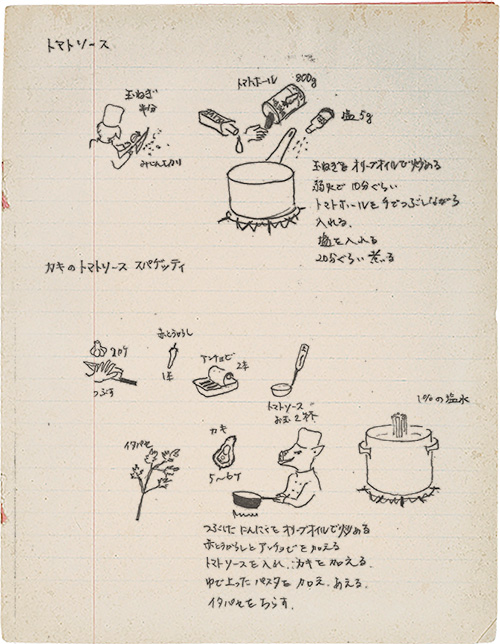 トマトソース
玉ねぎ
半分
みじんぎり
トマトホール 800g
塩 5g
玉ねぎを オリーブオイルで炒める
弱火で 10分ぐらい
トマトホールを手でつぶしながら
入れる.
塩を入れる
20分ぐらい 煮る
カキのトマトソース スパゲッティ
2ケ
つぶす
赤とうがらし
1本
アンチョビ
2本
トマトソース
おたま2杯
1%の塩水
イタパセ
カキ
5〜6ケ
つぶしたにんにくをオリーブオイルで炒める
赤とうがらしとアンチョビを加える
トマトソースを入れ、カキを加える.
ゆで上ったパスタを加え、あえる.
イタパセをちらす.